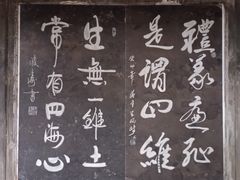 禮義廉恥
是謂四維
生無一錐土
常有四海心